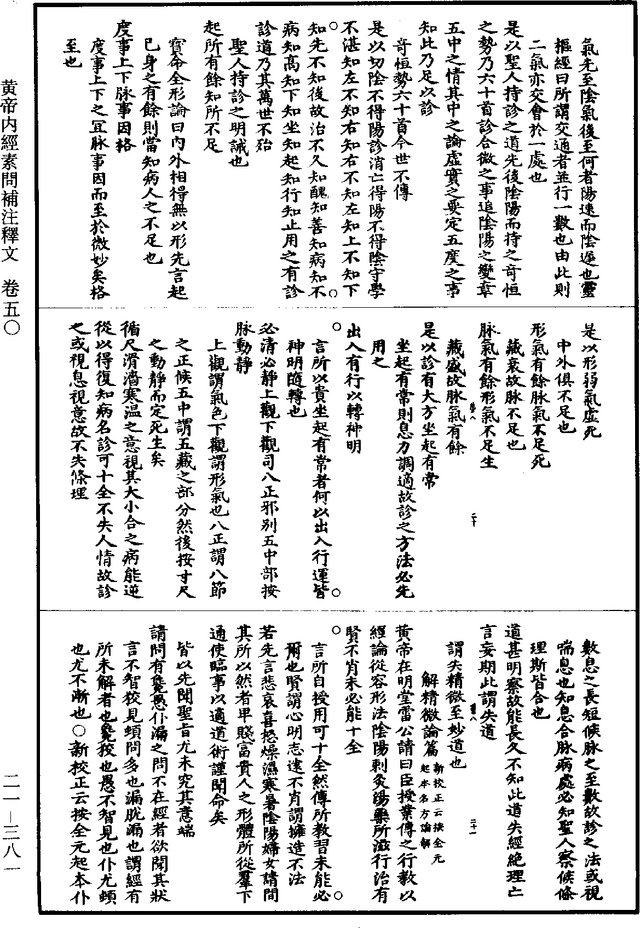 氣先至陰氣後至何者陽速而陰遲也靈
樞經曰所謂交通者並行一數也由此則
二氣亦交會於一處也
是以聖人持診之道先後陰陽而持之奇恒
之勢乃六十首診合微之事追陰陽之變章
五中之情其中之論虛實之要定五度之事
知此乃足以診
奇恒勢六十首今世不傳
是以切陰不得陽診消亡得陽不得陰守學
不湛知左不知右知右不知左知上不知下
知先不知後故治不久知醜知善知病知不
病知高知下知坐知起知行知止用之有診
診道乃具萬世不殆
聖人持診之明誡也
起所有餘知所不足
寳命全形論曰內外相得無以形先言起
已身之有餘則當知病人之不足也
度事上下脉事因格
度事上下之冝脉事因而至於微妙矣格
至也
是以形弱氣虛死
中外俱不足也
形氣有餘脉氣不足死
藏衰故脉不足也
脉氣有餘形氣不足生
藏盛故脉氣有餘
是以診有大方坐起有常
坐起有常則息力調適故診之方法必先
用之
出入有行以轉神明
言所以貴坐起有常者何以出入行運皆
神明隨轉也
必清必靜上觀下觀司八正邪別五中部按
脉動靜
上觀謂氣色下觀謂形氣也八正謂八節
之正候五中謂五藏之部分然後按寸尺
之動靜而定死生矣
循尺滑濇寒温之意視其大小合之病能逆
從以得復知病名診可十全不失人情故診
之或視息視意故不失條理
數息之長短候脉之至數故診之法或視
喘息也知息合脉病處必知聖人察候條
理斯皆合也
道甚明察故能長久不知此道失經絶理亡
言妄期此謂失道
謂失精微至妙道也
解精微論篇新校正云按全元起本名方論解
黄帝在明堂雷公請曰臣授業傳之行教以
經論從容形法陰陽刺灸湯藥所滋行治有
賢不肖未必能十全
言所自授用可十全然傳所教習未能必
爾也賢謂心明志逺不肖謂擁造不法
若先言悲哀喜怒燥濕寒暑陰陽婦女請問
其所以然者卑賤富貴人之形體所從羣下
通使臨事以適道術謹聞命矣
皆以先聞聖旨尤未究其意端
請問有毚愚仆漏之問不在經者欲聞其狀
言不智狡見頓問多也漏脱漏也謂經有
所未解者也毚狡也愚不智見也仆尤頓
也尤不漸也○新校正云按全元起本仆
黄帝內經素問補注釋文　卷五〇
二一－三八一